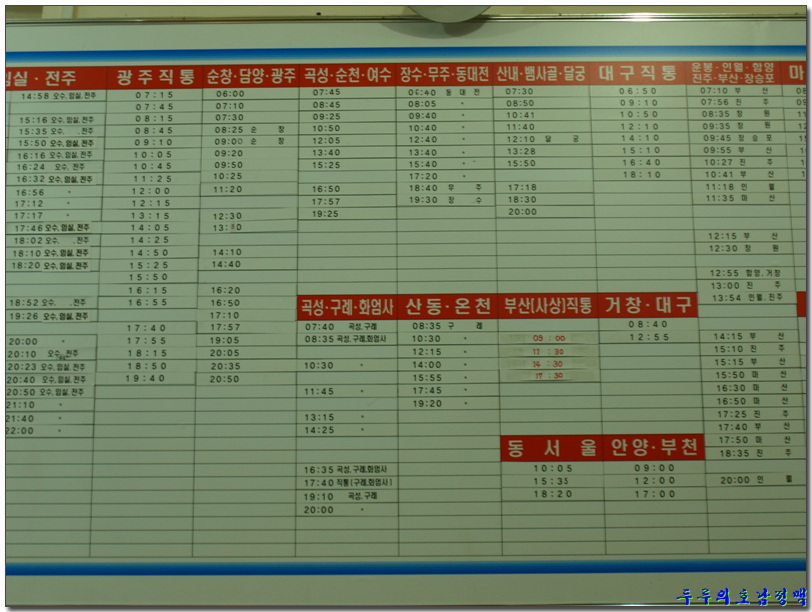 임실·전주
14:56 오수,임실,전주
15:16 오수,임실,전주
15:35 오수, .전주
15:50 오수,임실,전주
16:16 오수,임실,전주
16:24 오수,전주
16:32 오수,임실,전주
16:56 〃
17:12 〃
17:17 〃
17:46 오수,임실,전주
18:02 오수, .전주
18:10 오수,임실,전주
18:20 오수,임실,전주
18:52 오수, .전주
19:26 오수,임실,전주
20:00 〃
20:10 오수,전주
20:23 오수,임실,전주
20:40 오수,임실,전주
20:50 오수,임실,전주
21:10 〃
21:40 〃
22:00 〃
광주직통
07:15
07:45
08:15
08:45
09:10
10:05
10:45
11:25
12:00
12:15
13:15
14:05
14:25
14:50
15:25
15:50
16:15
16:55
17:40
17:55
18:15
18:50
19:40
순창·담양·광주
06:00
07:10
07:30
08:25 순 창
09:00 순 창
09:20
09:50
10:25
11:20
12:30
13:30
14:10
14:40
16:20
16:50
17:10
17:57
19:05
20:05
20:35
20:50
곡성·순천·여수
07:45
08:45
09:25
10:50
12:05
13:40
15:25
16:50
17:57
19:25
곡성·구례·화엄사
07:40 곡성,구례
08:35 곡성,구례,화엄사
10:30 〃
11:45 〃
13:15 〃
14:25 〃
16:35 곡성,구례,화엄사
17:40 직통(구례,화엄사)
19:10 곡성,구례
20:00 〃
장수·무주·동대전
06:40 동 대 전
08:05 〃
09:40 〃
10:40 〃
12:40 〃
13:40 〃
15:40 〃
17:20 〃
18:40 무 주
19:30 장 수
산동·온천
08:35 구 례
10:30 〃
12:15 〃
14:00 〃
15:55 〃
17:45 〃
19:20 〃
산내·뱀사골·달궁
07:30
08:50
10:41
11:40
12:10 달 궁
13:28
15:50
17:18
18:30
20:00
부산(사상)직통
09:00
11:30
14:30
17:30
동 서 울
10:05
15:35
18:20
대구직통
06:50
09:10
10:50
12:10
14:10
15:10
16:40
18:10
거창·대구
08:40
12:55
안양·부천
09:00
12:00
17:00
운봉·인월·함양
진주·부산·장승포
07:10 부 산
07:56 진 주
08:35 창 원
09:35 창 원
09:45 장 승 포
09:55 부 산
10:27 진 주
10:41 부 산
11:18 인 월
11:35 마 산
12:15 부 산
12:30 창 원
12:55 함양,거창
13:00 진 주
13:54 인월,진주
14:15 부 산
15:10 진 주
15:15 부 산
15:50 마 산
16:30 마 산
16:50 마 산
17:25 진 주
17:40 부 산
17:50 마 산
18:35 진 주
20:00 인 월
마
두루의 호남정맥